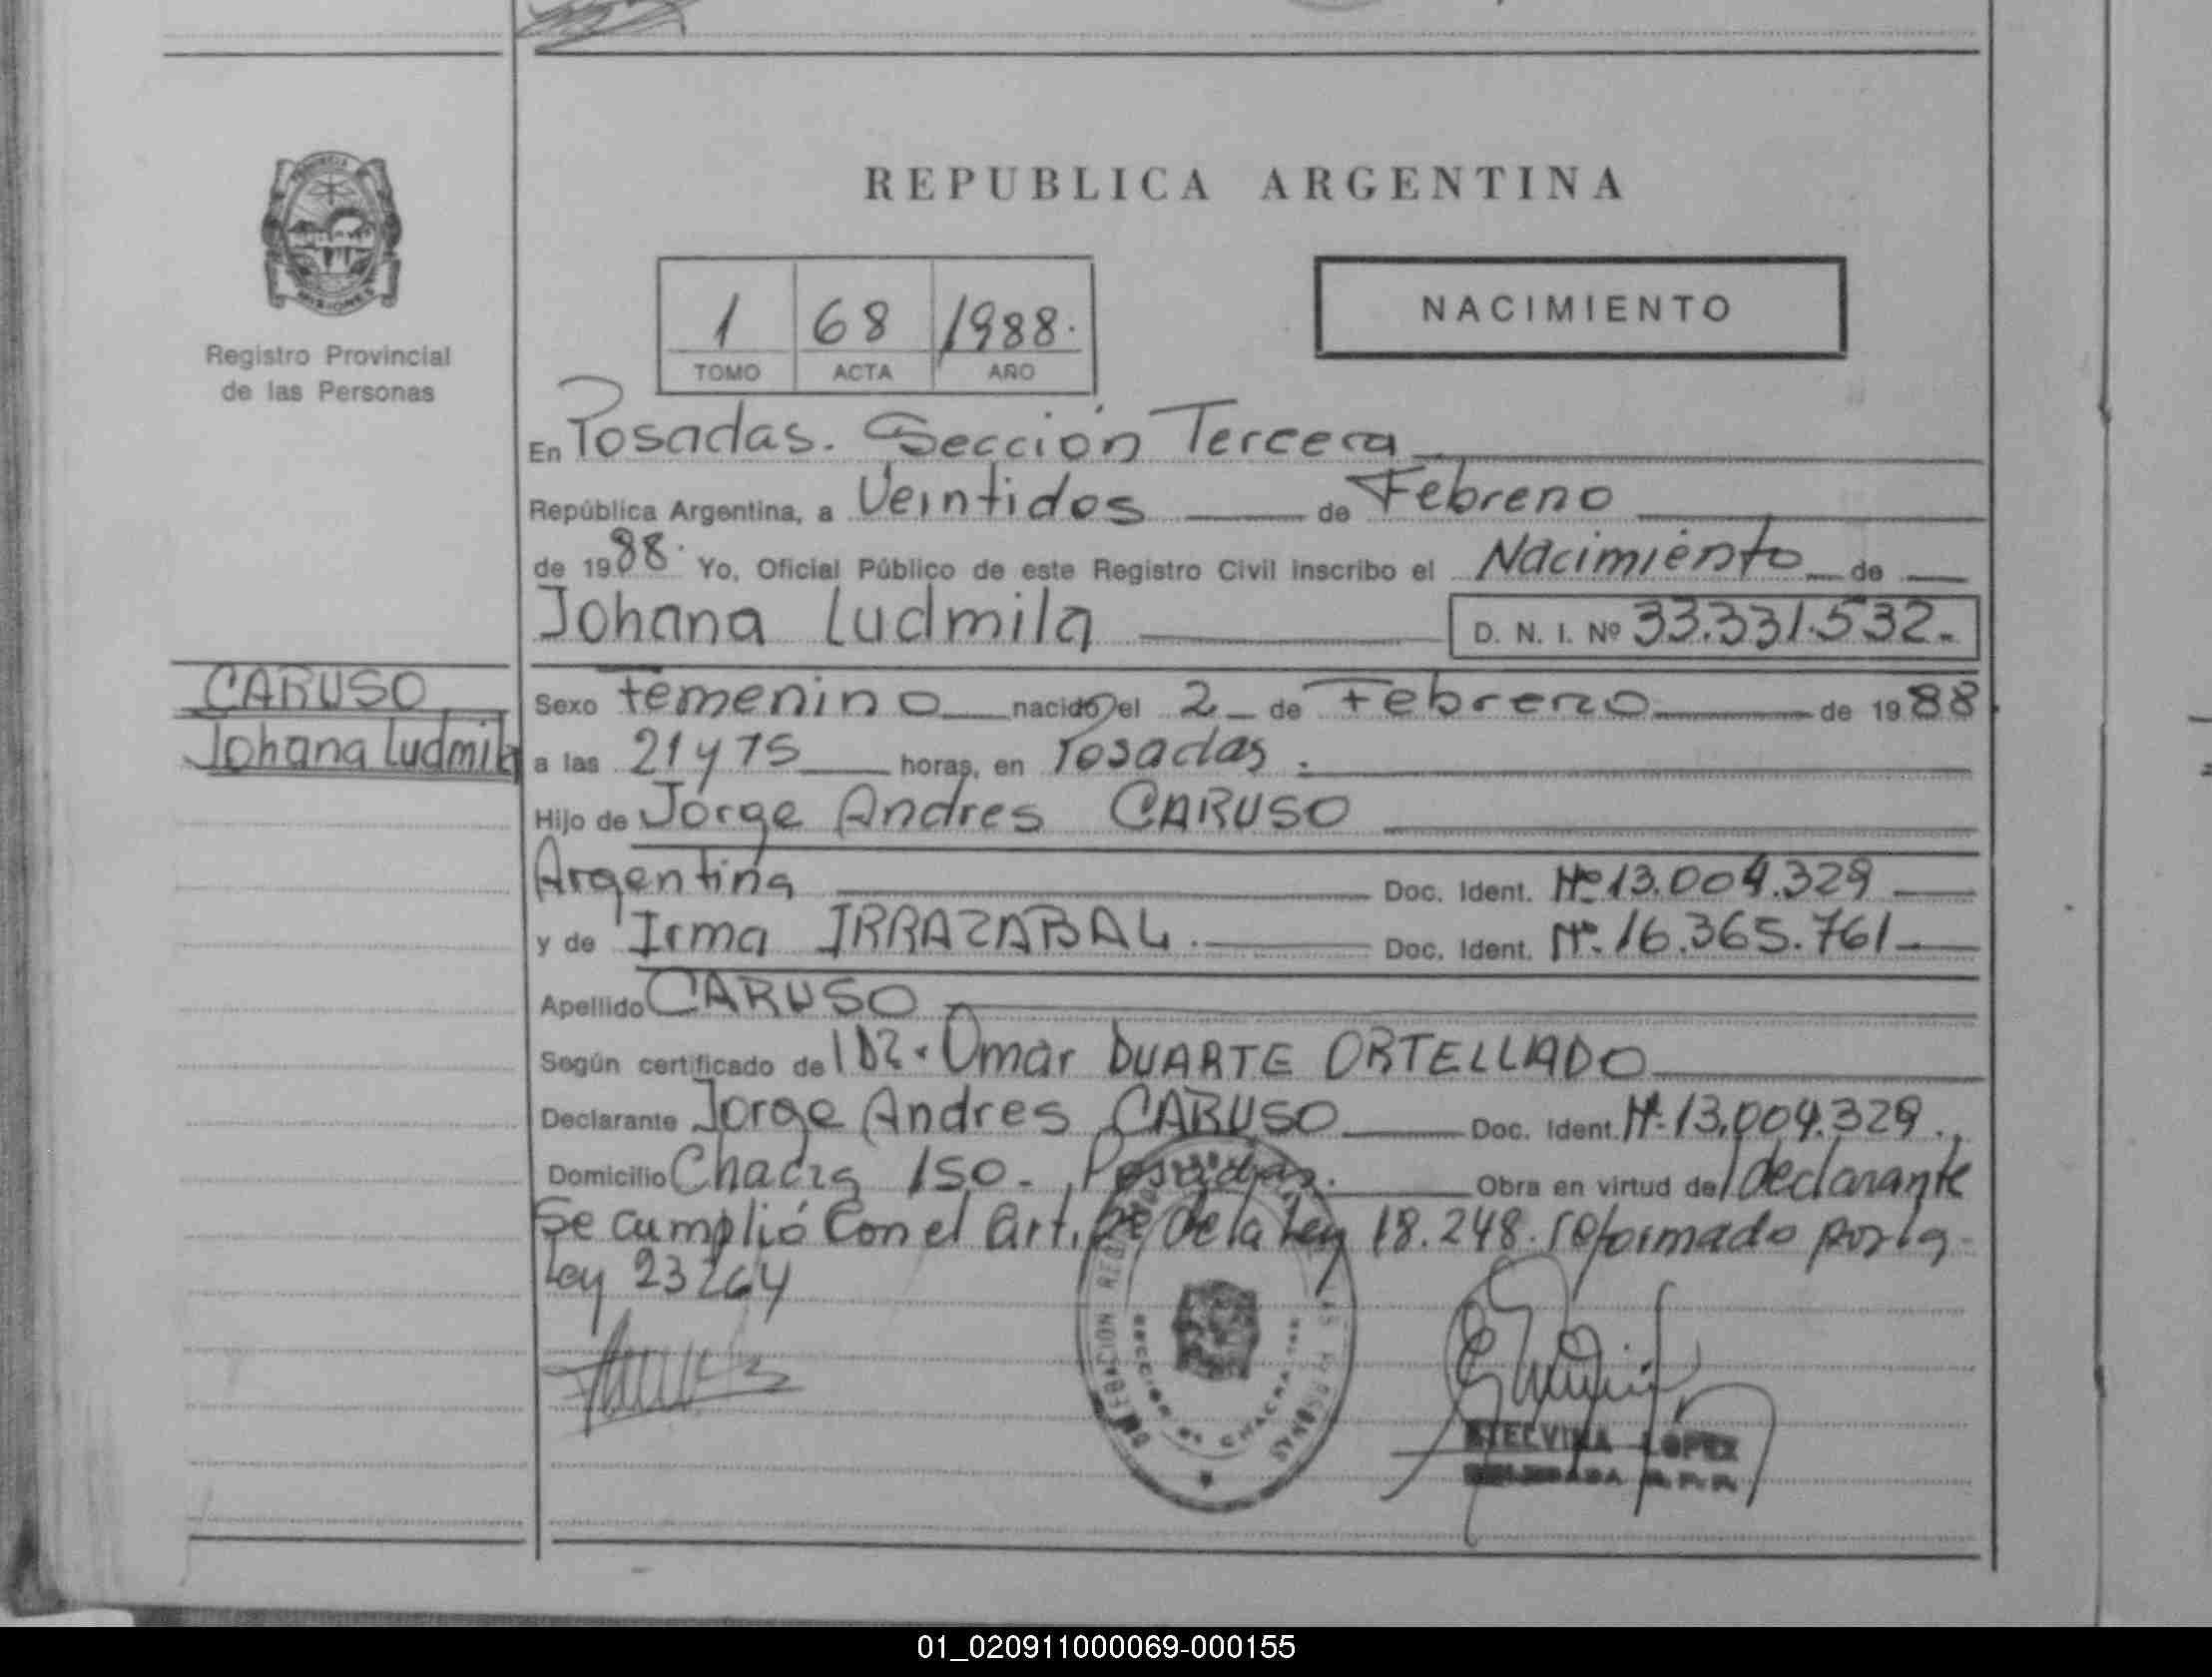 REPUBLICA ARGENTINA
PROVINCIA
MISIONES
Registro Provincial
de las Personas
1 68 1988.
TOMO ACTA AÑO
NACIMIENTO
En Posadas. Sección Tercera
República Argentina, a Veintidos de Febrero
de 1988. Yo, Oficial Público de este Registro Civil inscribo el Nacimiento de
Johana Ludmila D. N. I. Nº 33.331.532.-
CARUSO
Johana Ludmila
Sexo femenino nacido el 2 de Febrero de 1988
a las 21 y 15 horas, en Posadas.
Hijo de Jorge Andres CARUSO
Argentina Doc. Ident. Nº 13.004.329
y de Irma IRRAZABAL. Doc. Ident. Nº 16.365.761
Apellido CARUSO
Según certificado de Omar DUARTE ORTELLADO
Declarante Jorge Andres CARUSO Doc. Ident. Nº 13.004.329.
Domicilio Chacra 150. Posadas. Obra en virtud del declarante
Se cumplió con el art. de la Ley 18.248. reformado por la
Ley 23264
ETELVINA LOPEZ
DELEGADA R.P.P.
01_020911000069-000155